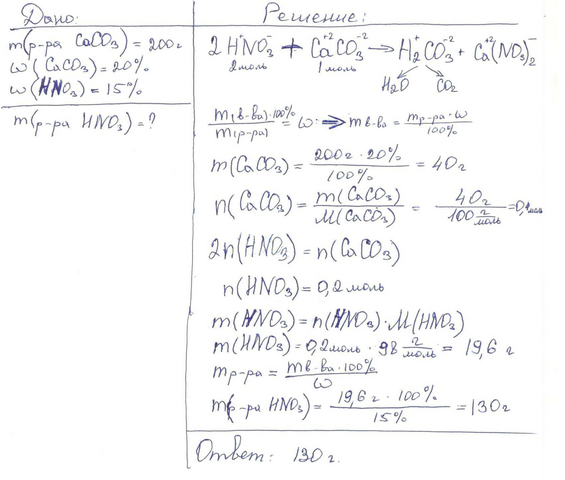 Дано:
m(р-ра CaCO₃) = 200г
ω(CaCO₃) = 20%
ω(HNO₃) = 15%
m(р-ра HNO₃) = ?
Решение:
2HNO₃ + CaCO₃ → H₂CO₃ + Ca(NO₃)₂
2моль 1моль H₂O CO₂
m(в-ва)·100% / m(р-ра) = ω ⇒ m в-ва = mр-ра · ω / 100%
m(CaCO₃) = 200г · 20% / 100% = 40г
n(CaCO₃) = m(CaCO₃) / M(CaCO₃) = 40г / 100 г/моль = 0,4моль
2n(HNO₃) = n(CaCO₃)
n(HNO₃) = 0,2моль
m(HNO₃) = n(HNO₃) · M(HNO₃)
m(HNO₃) = 0,2моль · 98 г/моль = 19,6 г
mр-ра = mв-ва · 100% / ω
m(р-ра HNO₃) = 19,6г · 100% / 15% = 130г
Ответ: 130г.